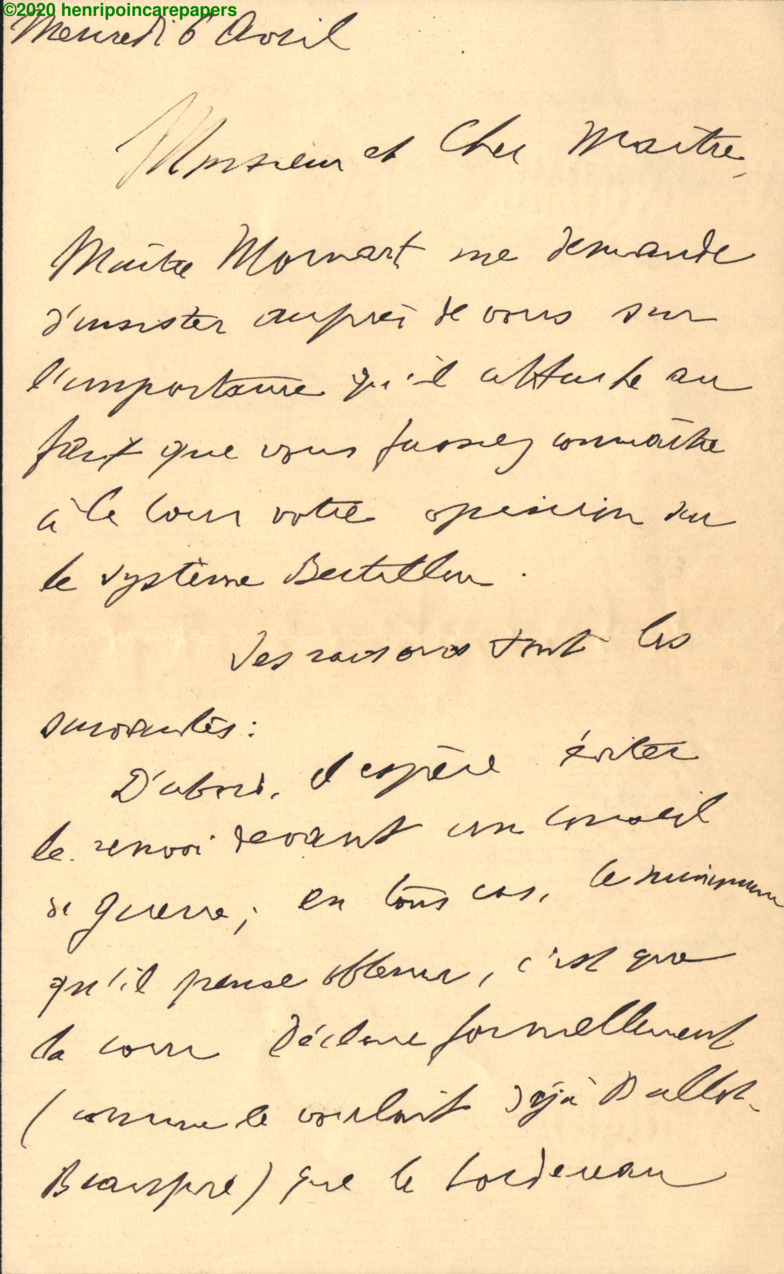 ©2020 henripoincarepapers
Mercredi 6 Avril
Monsieur et Cher Maître,
Maître Mornart me demande
d'insister auprès de vous sur
l'importance qu'il attache au
fait que vous fassiez connaître
à la Cour votre opinion sur
le système Bertillon.
Ses raisons sont les
suivantes :
D'abord, il espère éviter
le renvoi devant un Conseil
de guerre ; en tous cas, le minimum
qu'il pense obtenir, c'est que
la cour déclare formellement
(comme le voulait déjà Ballot-
Beaupré) que le bordereau